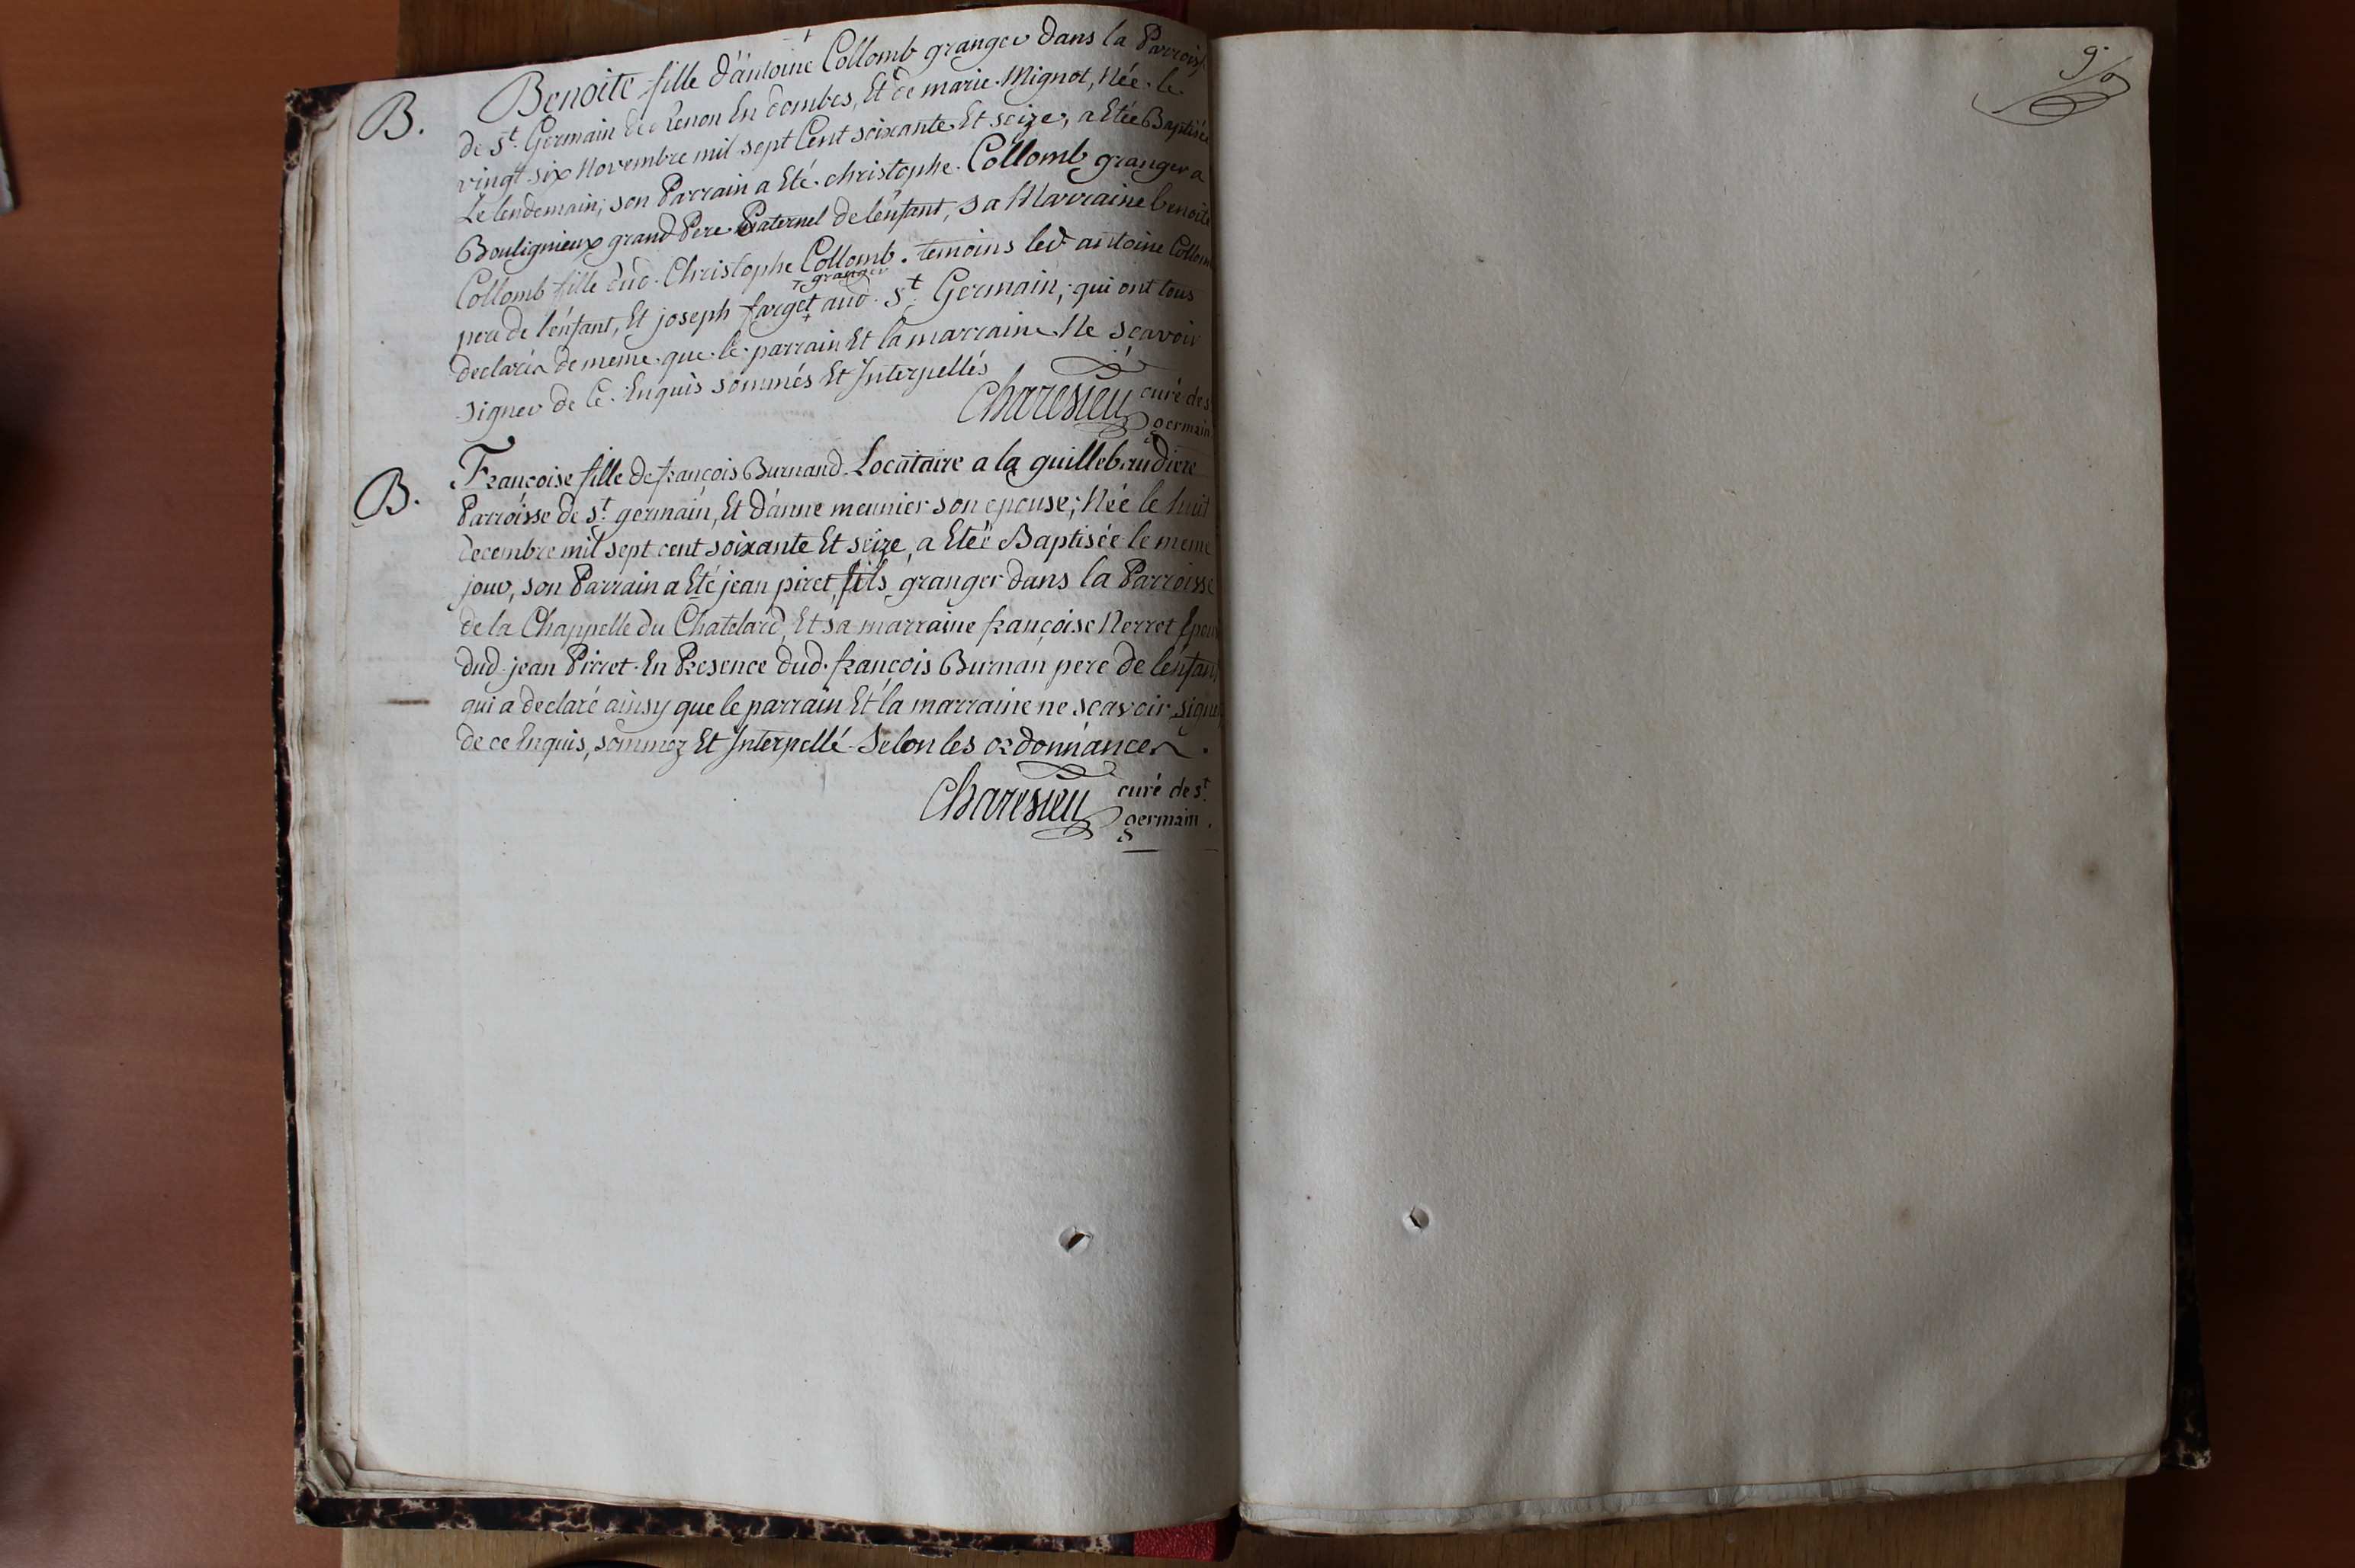 B. Benoite fille d'antoine Collomb granger dans la Parroisse
de St. Germain de Renon En dombes, Et de marie Mignot, Née le
vingt six Novembre mil sept Cent soixante Et seize, a Etée Baptisée
Le lendemain; son Parrain a Eté christophe Collomb granger a
Bouligneux grand Pere Paternel de lenfant, sa Marraine benoite
Collomb fille dud. Christophe Collomb. temoins led. antoine Collomb
+ granger
pere de l'enfant, Et joseph farget + aud. St. Germain; qui ont tous
declarés de meme que le parrain Et la marraine Ne sçavoir
signer de Ce Enquis sommés Et Interpellés
Charesieu curé de s.
germain
B. Françoise fille de françois Burnand Locataire a la guillebaudiere
Parroisse de St. germain, Et d'anne meunier son epouse; Née le huit
decembre mil sept cent soixante Et seize, a Eteé Baptisée le meme
jour, son Parrain a Eté jean piret, fils, granger dans la Parroisse
de la Chappelle du Chatelard, Et sa marraine françoise Nerret Epouse
dud. jean Pirret. En Presence dud. françois Burnan pere de lenfant
qui a declaré ainsy que le parrain Et la marraine ne sçavoir signer
de ce Enquis, sommez Et Interpellé Selon les ordonnances.
Charesieu curé de st.
germain.
9e